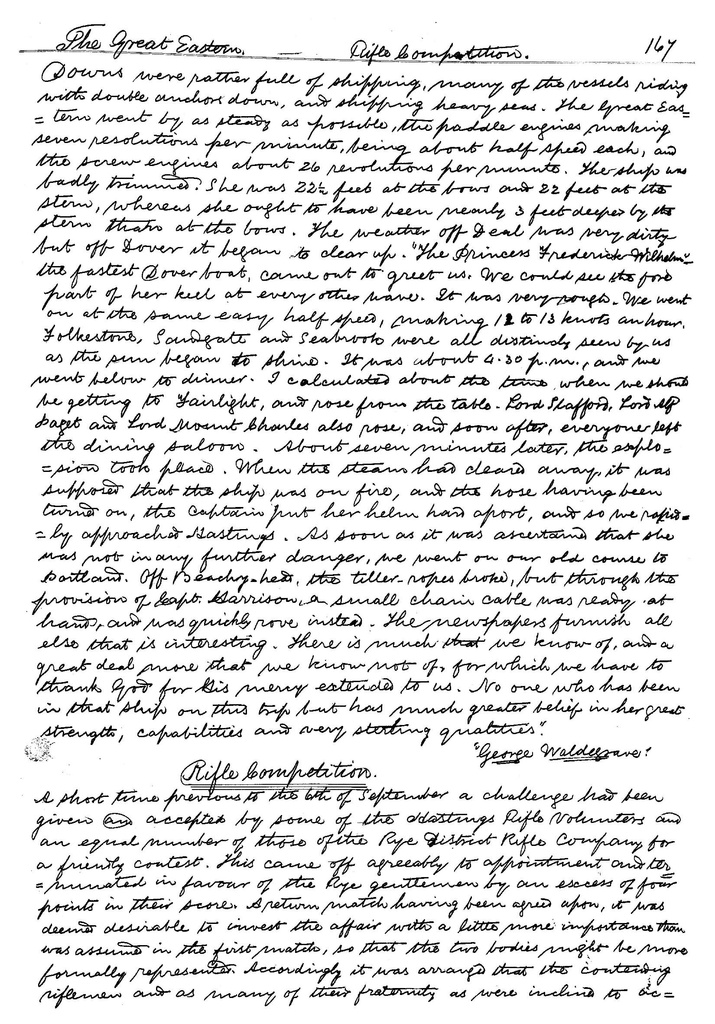 The Great Eastern. — Rifle Competition. 167
Downs were rather full of shipping, many of the vessels riding
with double anchors down, and shipping heavy seas. The Great Eas=
=tern went by as steady as possible, the paddle engines making
seven resolutions per minute, being about half speed each, and
the screw engines about 26 revolutions per minute. The ship was
badly trimmed. She was 22½ feet at the bows and 22 feet at the
stern, whereas she ought to have been nearly 3 feet deeper by the
stern than at the bows. The weather off Deal was very dirty
but off Dover it began to clear up. "The Princess Frederick Wilhelm"
the fastest Dover boat, came out to greet us. We could see the fore
part of her keel at every other wave. It was very rough. We went
on at the same easy half speed, making 12 to 13 knots an hour.
Folkestone, Sandgate and Seabrook were all distincly seen by us
as the sun began to shine. It was about 4.30 p.m., and we
went below to dinner. I calculated about the time when we should
be getting to Fairlight, and rose from the table. Lord Stafford, Lord Alf
Paget and Lord Mount Charles also rose, and soon after, everyone left
the dining saloon. About seven minutes later, the explo=
=sion took place. When the steam had cleard away, it was
supposed that the ship was on fire, and the hose having been
turned on, the captain put her helm hard aport, and so we rapid=
=ly approached Hastings. As soon as it was ascertained that she
was not in any further danger, we went on our old course to
Portland. Off Beachy-head, the tiller-ropes broke, but through the
provision of Capt. Harrison, a small chain cable was ready at
hand, and was quickly rove instead. The newspapers furnish all
else that is interesting. There is much that we know of, and a
great deal more that we know not of, for which we have to
thank God for His mercy extended to us. No one who has been
in that ship on this trip but has much greater belief in her great
strength, capabilities and very sterling qualities".
"George Waldegrave."
Rifle Competition.
A short time previous to the 6th of September a challenge had been
given and accepted by some of the Hastings Rifle Volunteers and
an equal number of those of the Rye District Rifle Company for
a friendly contest. This came off agreeably to appointment and ter=
=minated in favour of the Rye gentlemen by an excess of four
points in their score. A return match having been agreed upon, it was
deemed desirable to invest the affair with a little more importance than
was assumed in the first match, so that the two bodies might be more
formally represented. Accordingly it was arranged that the contending
riflemen and as many of their fraternity as were inclined to ac=